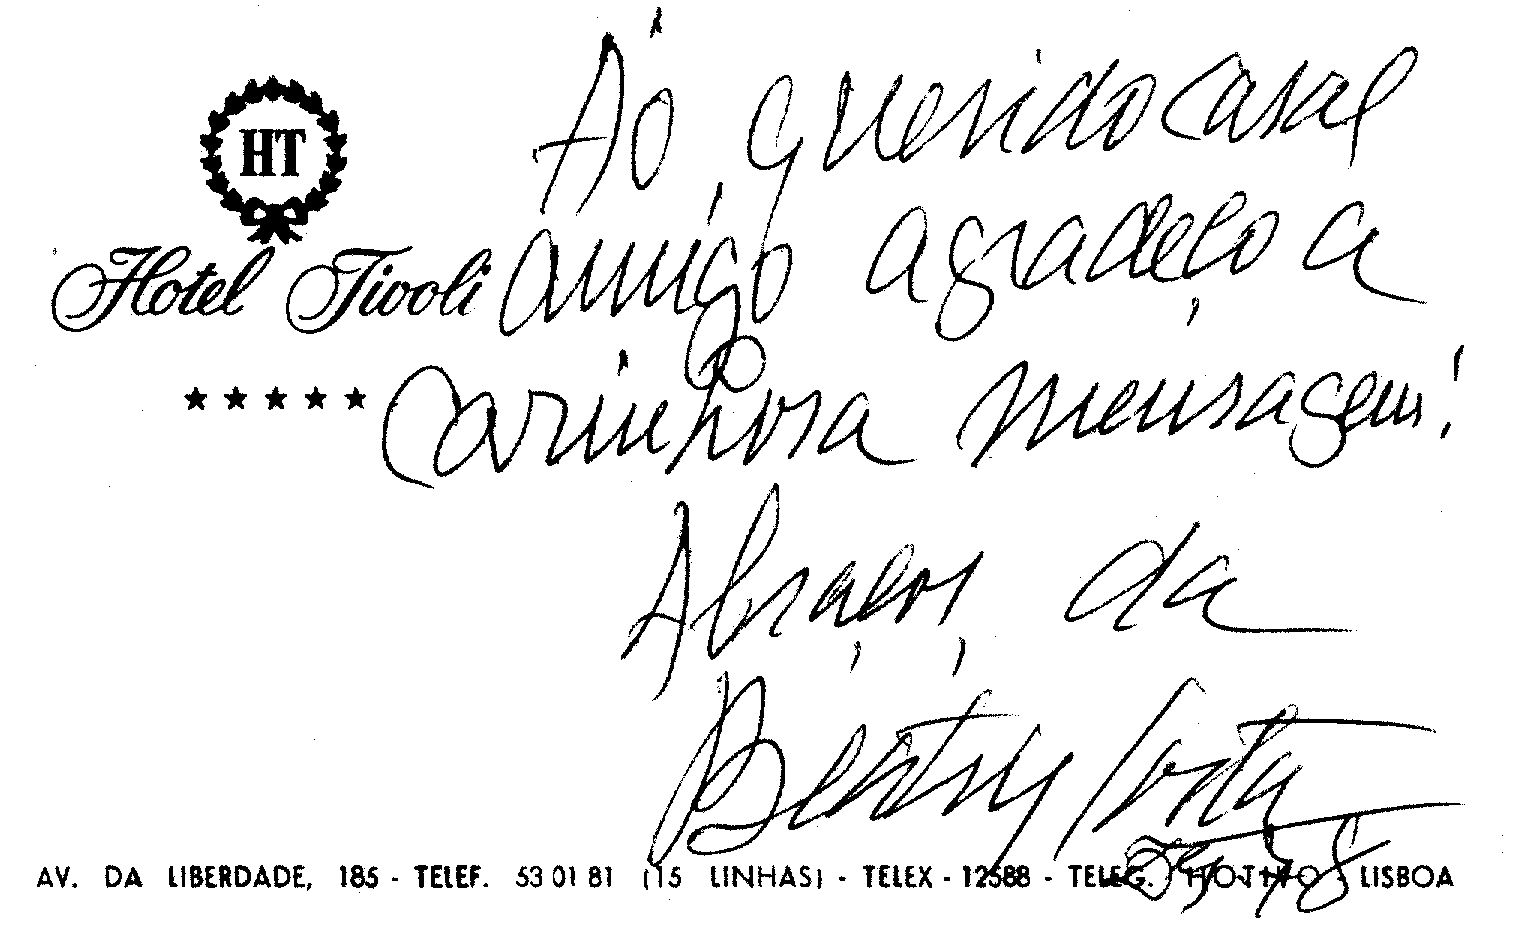 Ao querido casal
HT
Hotel Tivoli
amigo agradeço a
★★★★★
carinhosa mensagem!
Abraços, da
Beatriz Costa
AV. DA LIBERDADE, 185 - TELEF. 53 01 81 (15 LINHAS) - TELEX - 12588 - TELEG. HOTIVO - LISBOA